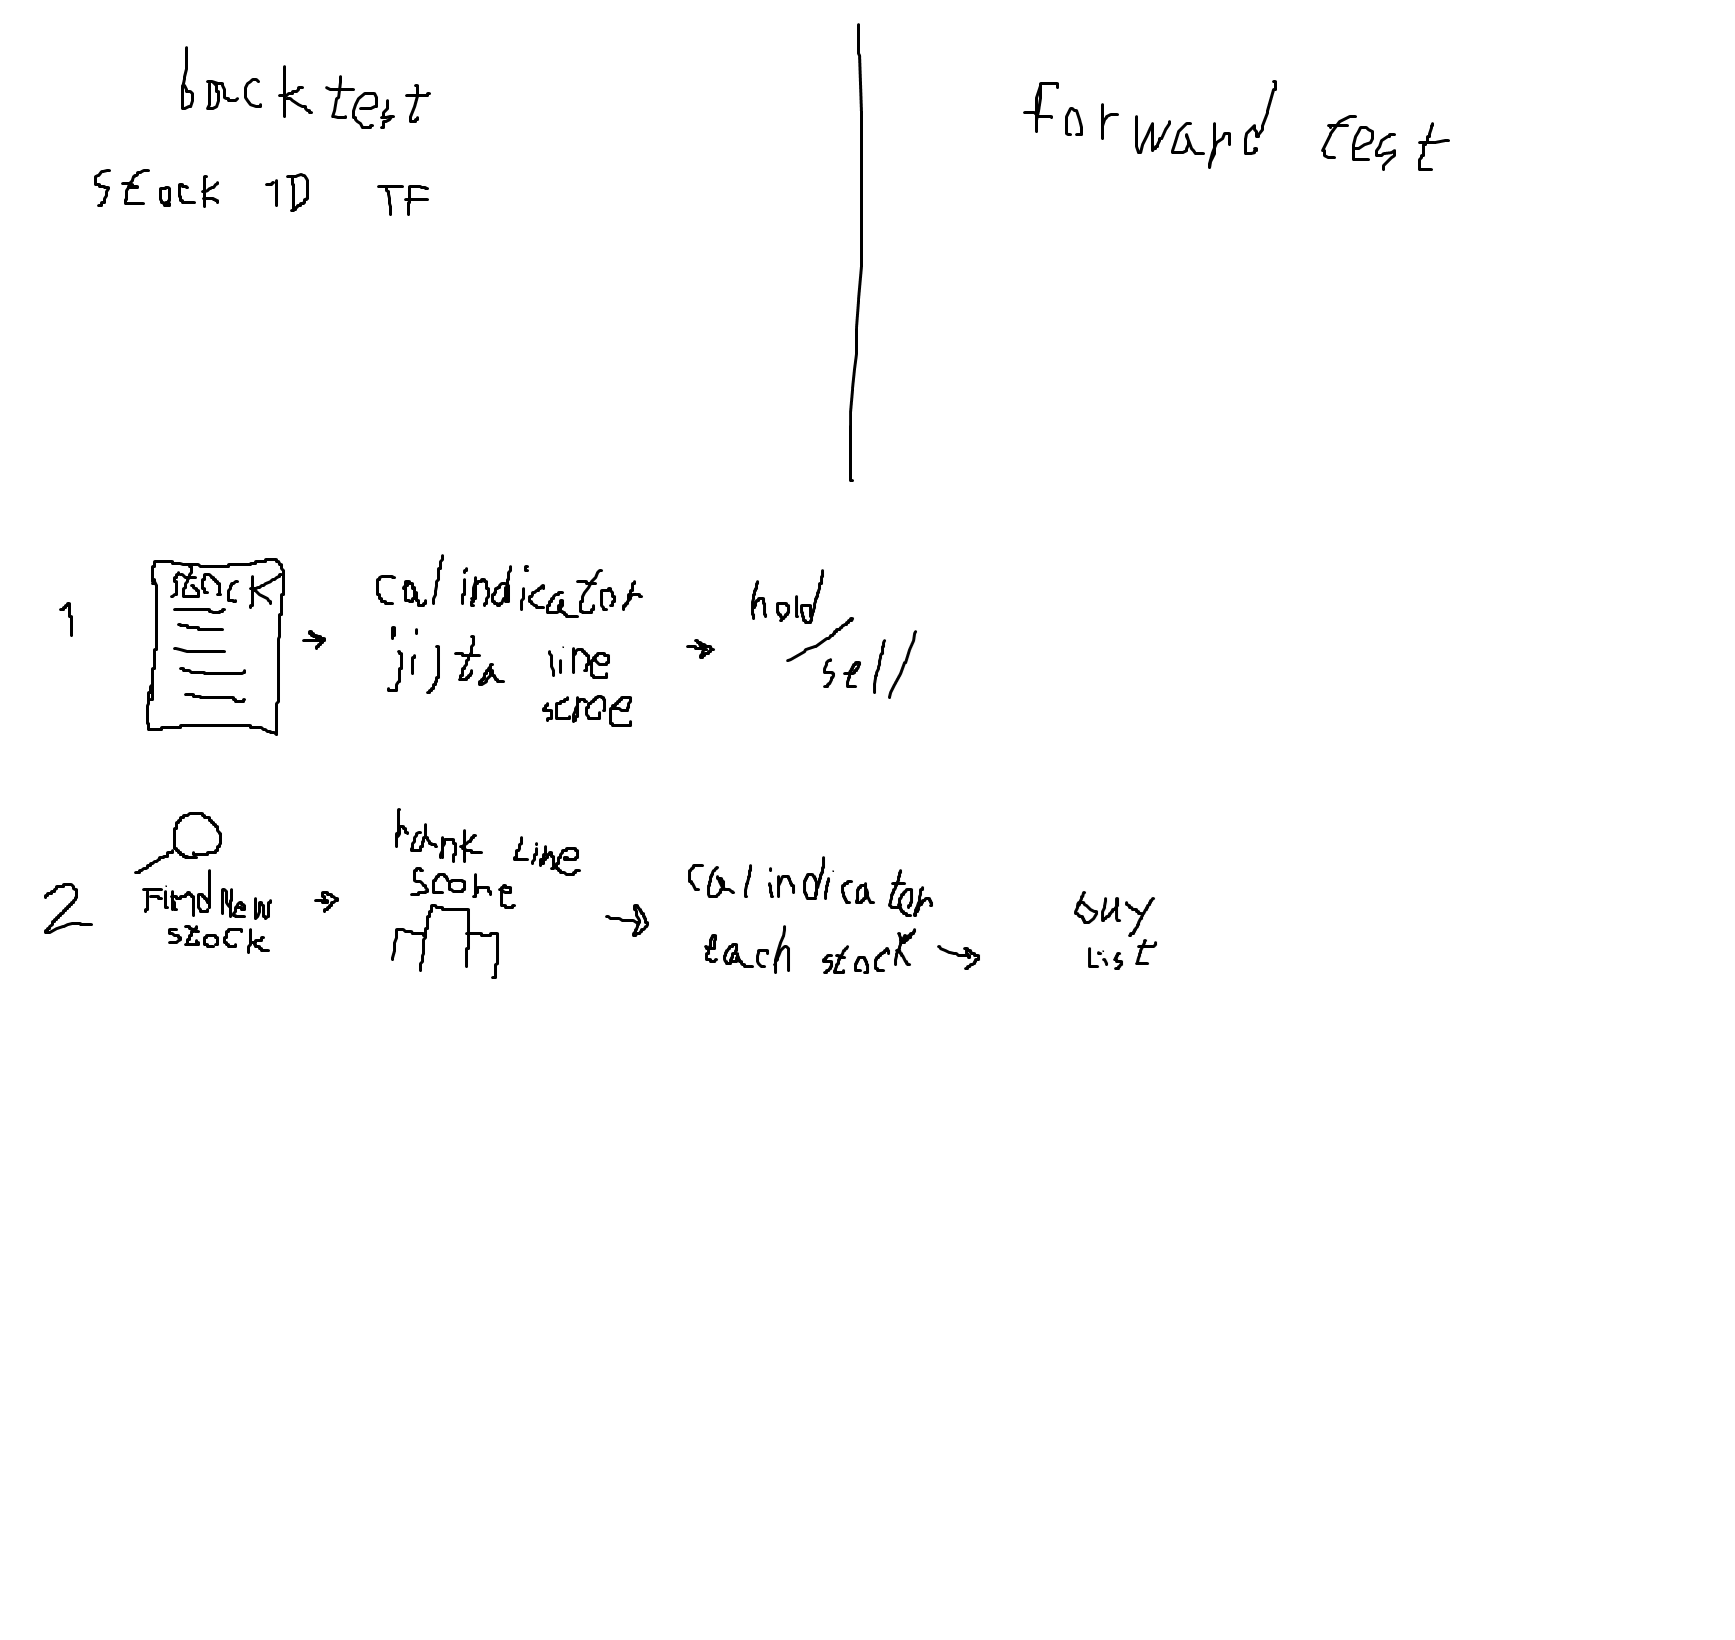 back test
stock 1D TF
forward test
1
stock
cal indicator
jijta line
scroe
hold
/
sell
2
Find New
stock
rank line
score
cal indicater
each stock
buy
list